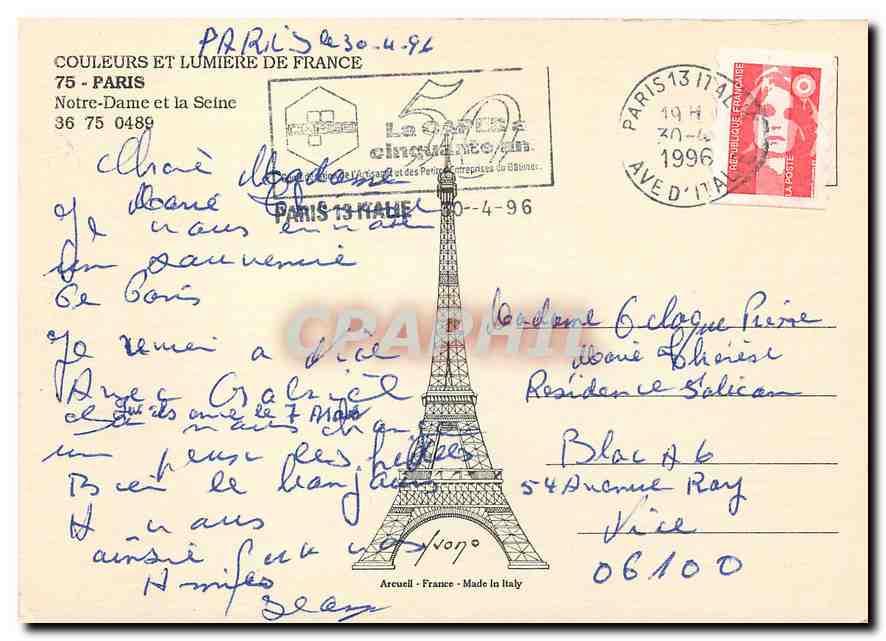 PARIS le 30-4-96
COULEURS ET LUMIERE DE FRANCE
75 - PARIS
Notre-Dame et la Seine
36 75 0489
50
La CAPEB a
cinquante an
de l'Artisanat et des Petites Entreprises du Bâtiment
PARIS 13 ITALIE 30-4-96
PARIS 13 ITALIE
19 H
30-4
1996
AVE D'ITALIE
REPUBLIQUE FRANÇAISE
LA POSTE
Madame
Marie Therese
Je vous envoie
un souvenir
de Paris
Je a Nice
Avec Gabriel
le 7 Mai
nous change
un peux les
Bien le bonjours
A vous
ainsie
Amities
Jean
CPARHIL
Madame Pierre
Marie Thérèse
Residence
Bloc A6
54 Avenue Ray
Nice
06100
Yvon
Arcueil - France - Made in Italy